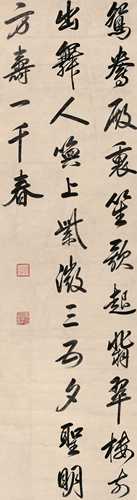 鴛鴦殿裏笙歌起翡翠樓前
出舞人喚上紫微三五夕聖明
方壽一千春